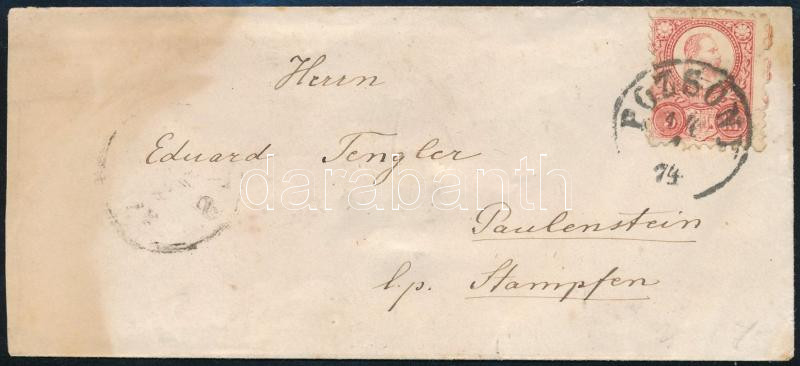 POZSONY
74
Herrn
Eduard Tengler
darabanth
Paulenstein
l.p. Stampfen